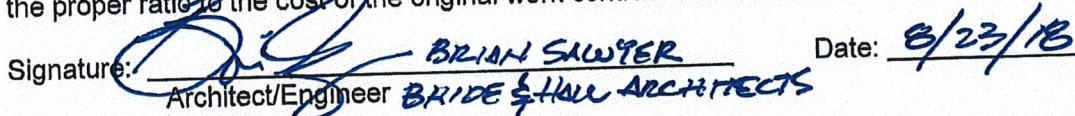 the proper ratio to the cost of the original work
Signature: BRIAN SAWYER Date: 8/23/18
Architect/Engineer BRIDE & HALL ARCHITECTS